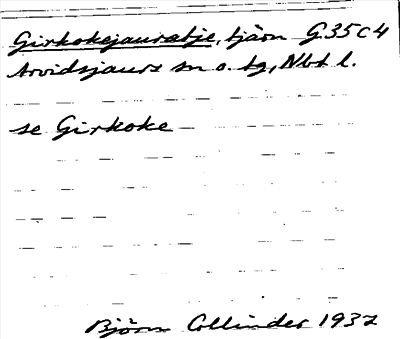 Girkokejauratje, tjärn G.35c4
Arvidsjaurs sn o. tg, Nbt l.
se Girkoke
Björn Collinder 1937